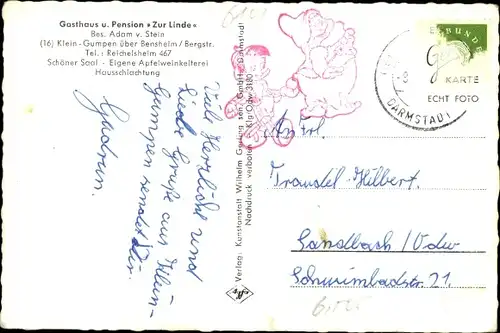 Gasthaus u. Pension »Zur Linde«
Bes. Adam v. Stein
(16) Klein-Gumpen über Bensheim / Bergstr.
Tel.: Reichelsheim 467
Schöner Saal - Eigene Apfelweinkelterei
Hausschlachtung
Viele Herzliche und
Liebe Grüße aus Klein-
Gumpen sendet Dir
Gudrun.
Verlag: Kunstanstalt Wilhelm Gerling sen. GmbH. Darmstadt
Nachdruck verboten Klg/Odw 3180
KARTE
ECHT FOTO
DARMSTADT
An Frl.
Traudel Hilbert.
Sandbach/Odw
Schwimbadstr. 21.